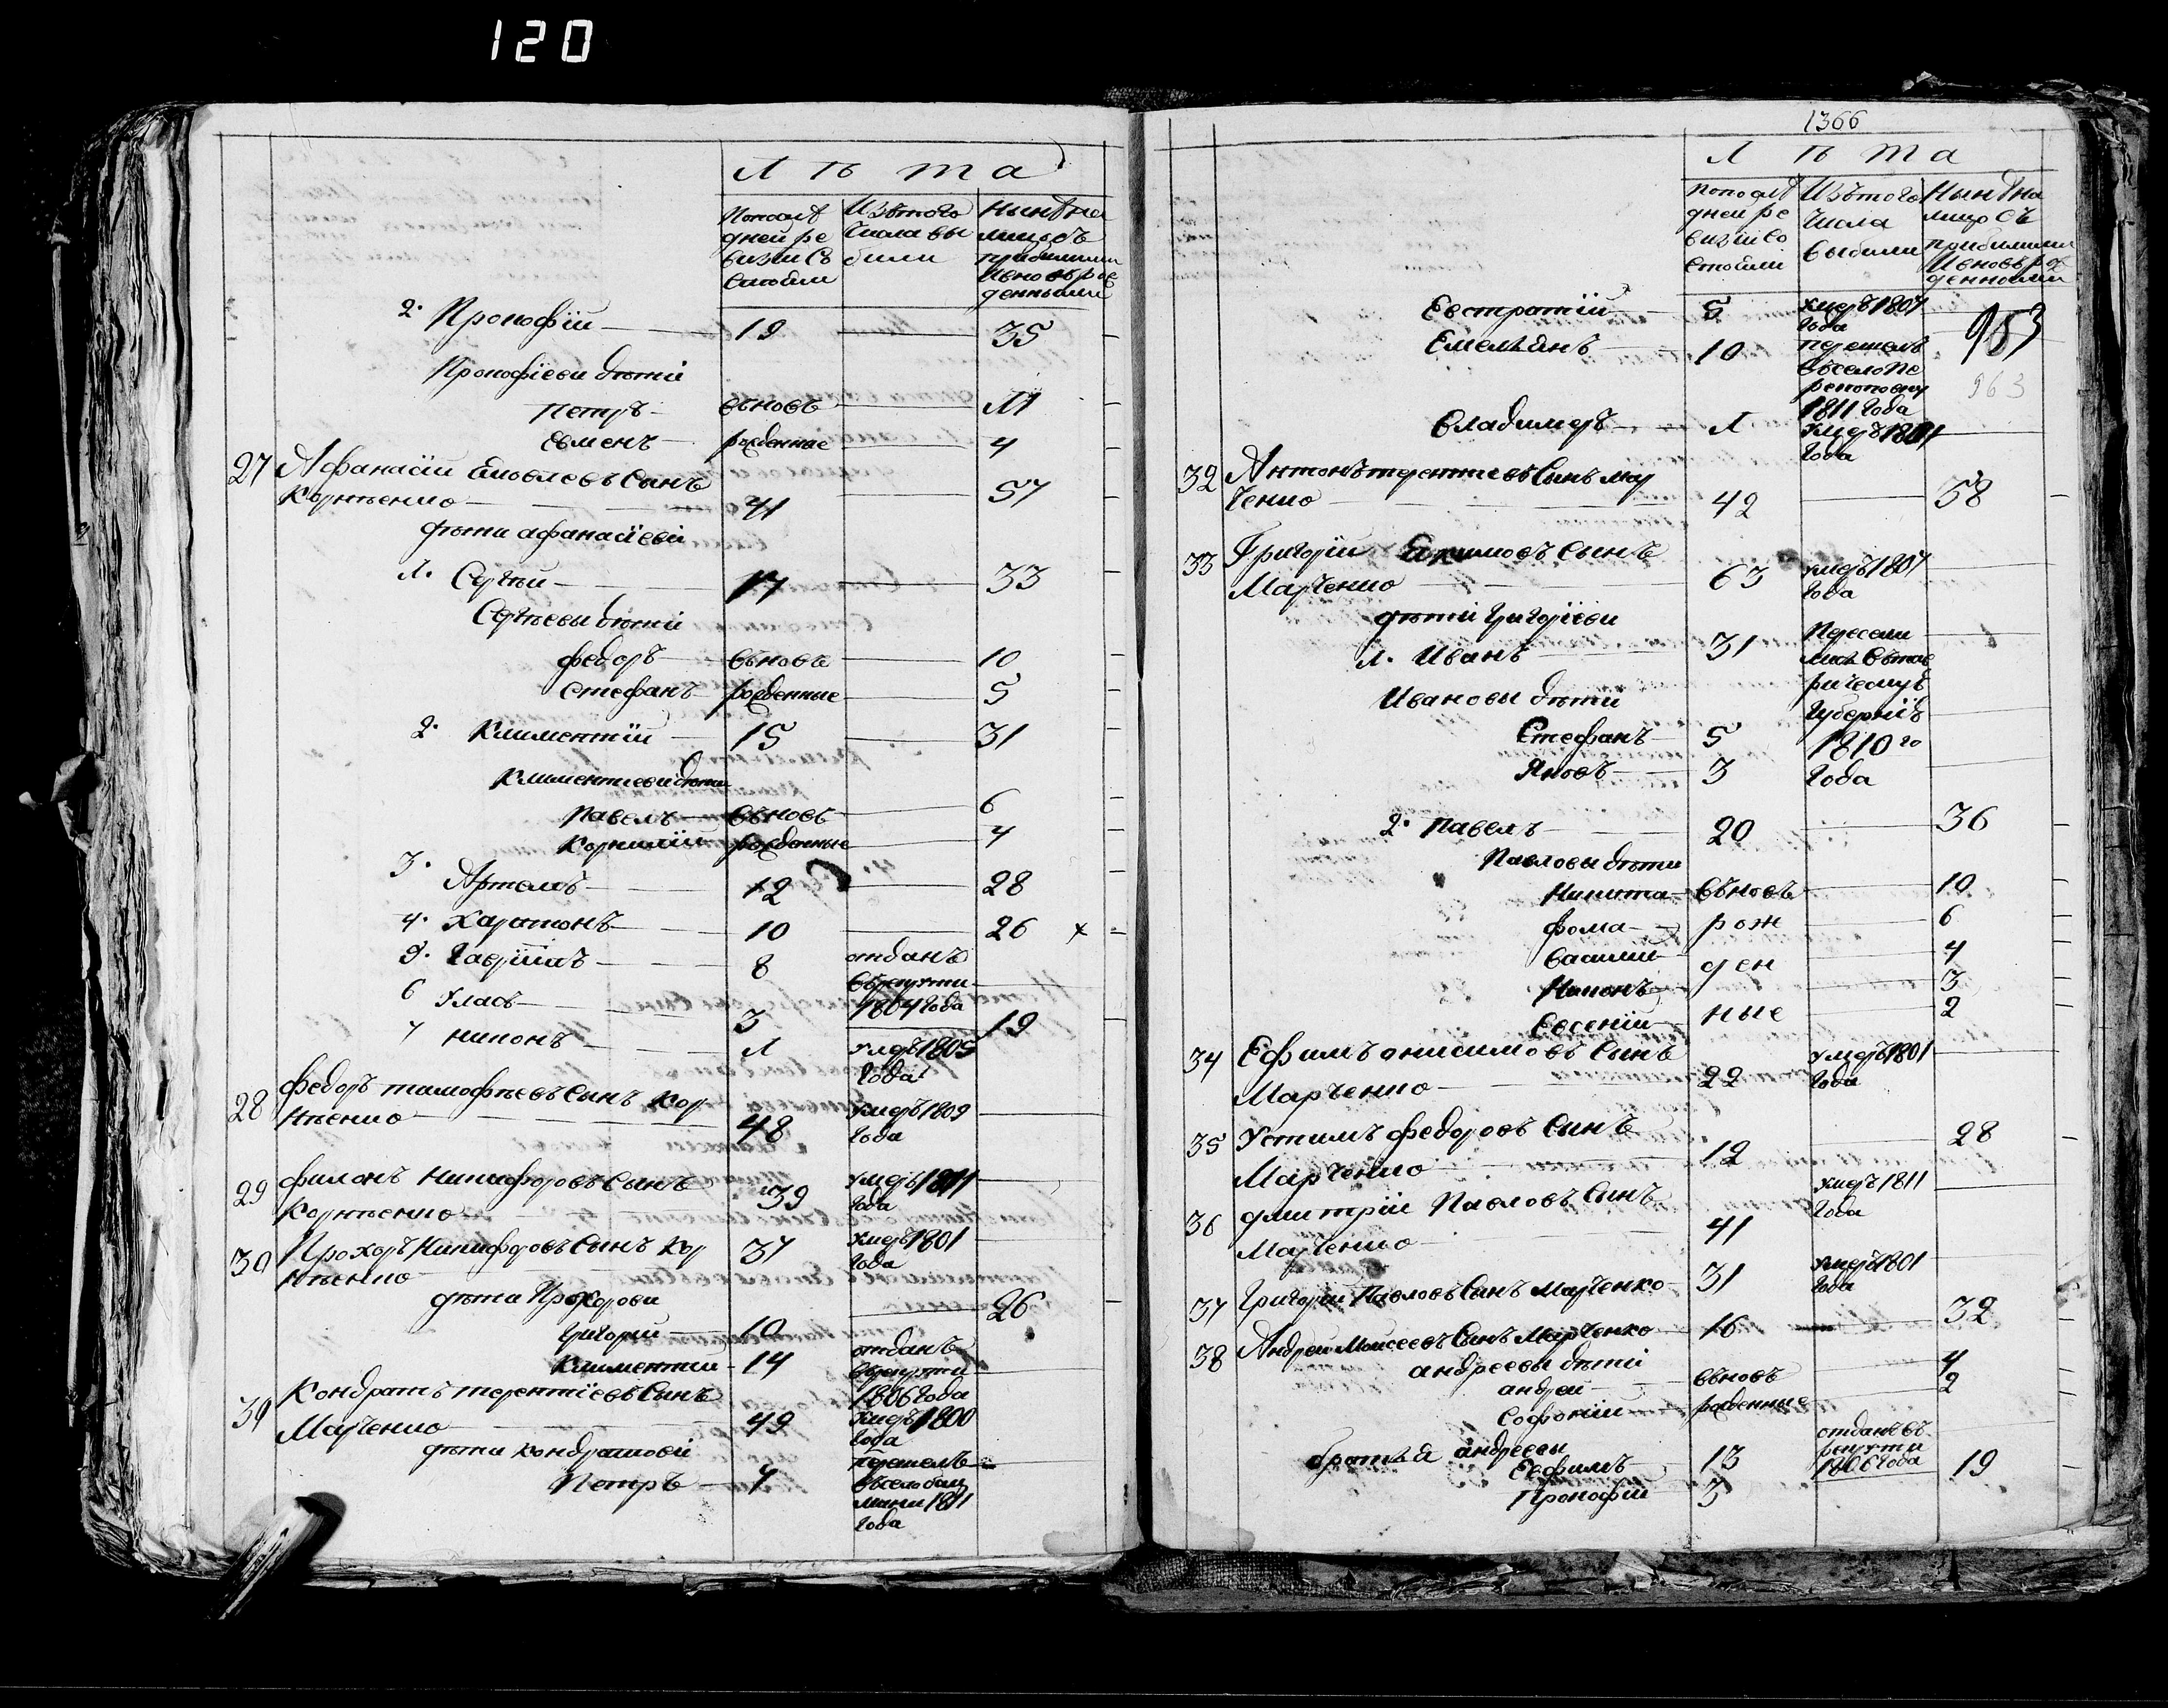 120
Лѣта
Попослѣ Изътого Нынѣ на
дней ре числа вы лицо съ
визіи со были прибылыми
стояли ивновь рож
денными
2. Прокофій 19 35
Прокофіеви дѣти
Петръ вьновь 11
Евменъ рожденные 4
27 Афанасій Яковлевъ Сынъ
Корнѣенко 41 57
дѣти афанасіеви
1. Сергѣй 17 33
Сергѣевы дѣти
федоръ вьновь 10
Стефанъ рожденные 5
2. Климентій 15 31
Климентиеви дѣти
Павелъ вьновь 6
Корнилій рожденные 4
3. Артемъ 12 28
4. Харитонъ 10 26 х
5. Гавріилъ 8 отданъ
врекрути
1804 года
6 Уласъ 3 19
7 никонъ 1 умеръ 1805
года
28 федоръ тимофѣевъ Сынъ Кор
нѣенко 48 умеръ 1809
года
29 филонъ Никифоровъ Сынъ
Корнѣенко 39 умеръ 1811
года
30 Прохоръ Никифоровъ Сынъ Кор
нѣенко 37 умеръ 1801
года
дѣти Прохорови
григорій 10 26
Климентий 14 отданъ
врекрути
1806 года
31 Кондратъ терентіевъ Сынъ
Марченко 49 умеръ 1800
года
дѣти кондратовѣ
Петръ 7 перешелъ
въсело
1811
года
1366
Лѣта
Попослѣ Изътого Нынѣ на
дней ре числа лицо съ
визіи со выбыли прибылыми
стояли ивновь рож
денными
Евстратій 5 умеръ 1807
года
Емельянъ 10 перешелъ
въсело Пе
реко
1811 года
953
963
Владимеръ 1 умеръ 1801
года
32 Антонъ терентиевъ Сынъ Мар
ченко 42 58
33 Григорій Екимовъ Сынъ
Марченко 63 умеръ 1807
года
дѣти григоріеви
1. Иванъ 31 Пересели
лись Втав
рическую
Губернію
1810го
года
Ивановы дѣти
Стефанъ 5
Яковъ 3
2. Павелъ 20 36
Павловы дѣти
Никита вьновь 10
фома рож 6
Василий ден 4
Никонъ 3
Евсеній ные 2
34 Ефимъ онисимовъ Сынъ
Марченко 22 умеръ 1801
года
35 Устимъ федоровъ Сынъ
Марченко 12 28
36 дмитрій Павловъ Сынъ
Марченко 41 умеръ 1811
года
37 Григорій Павловъ Сынъ Марченко 31 умеръ 1801
года
38 Андрей Моисеевъ Сынъ Марченко 16 32
андреевы дѣти
андрей вьновь 4
Софоній рожденные 2
братья андреевы
Евфимъ 13 отданъ въ
рекрути
1806 года
Прокофій 3 19